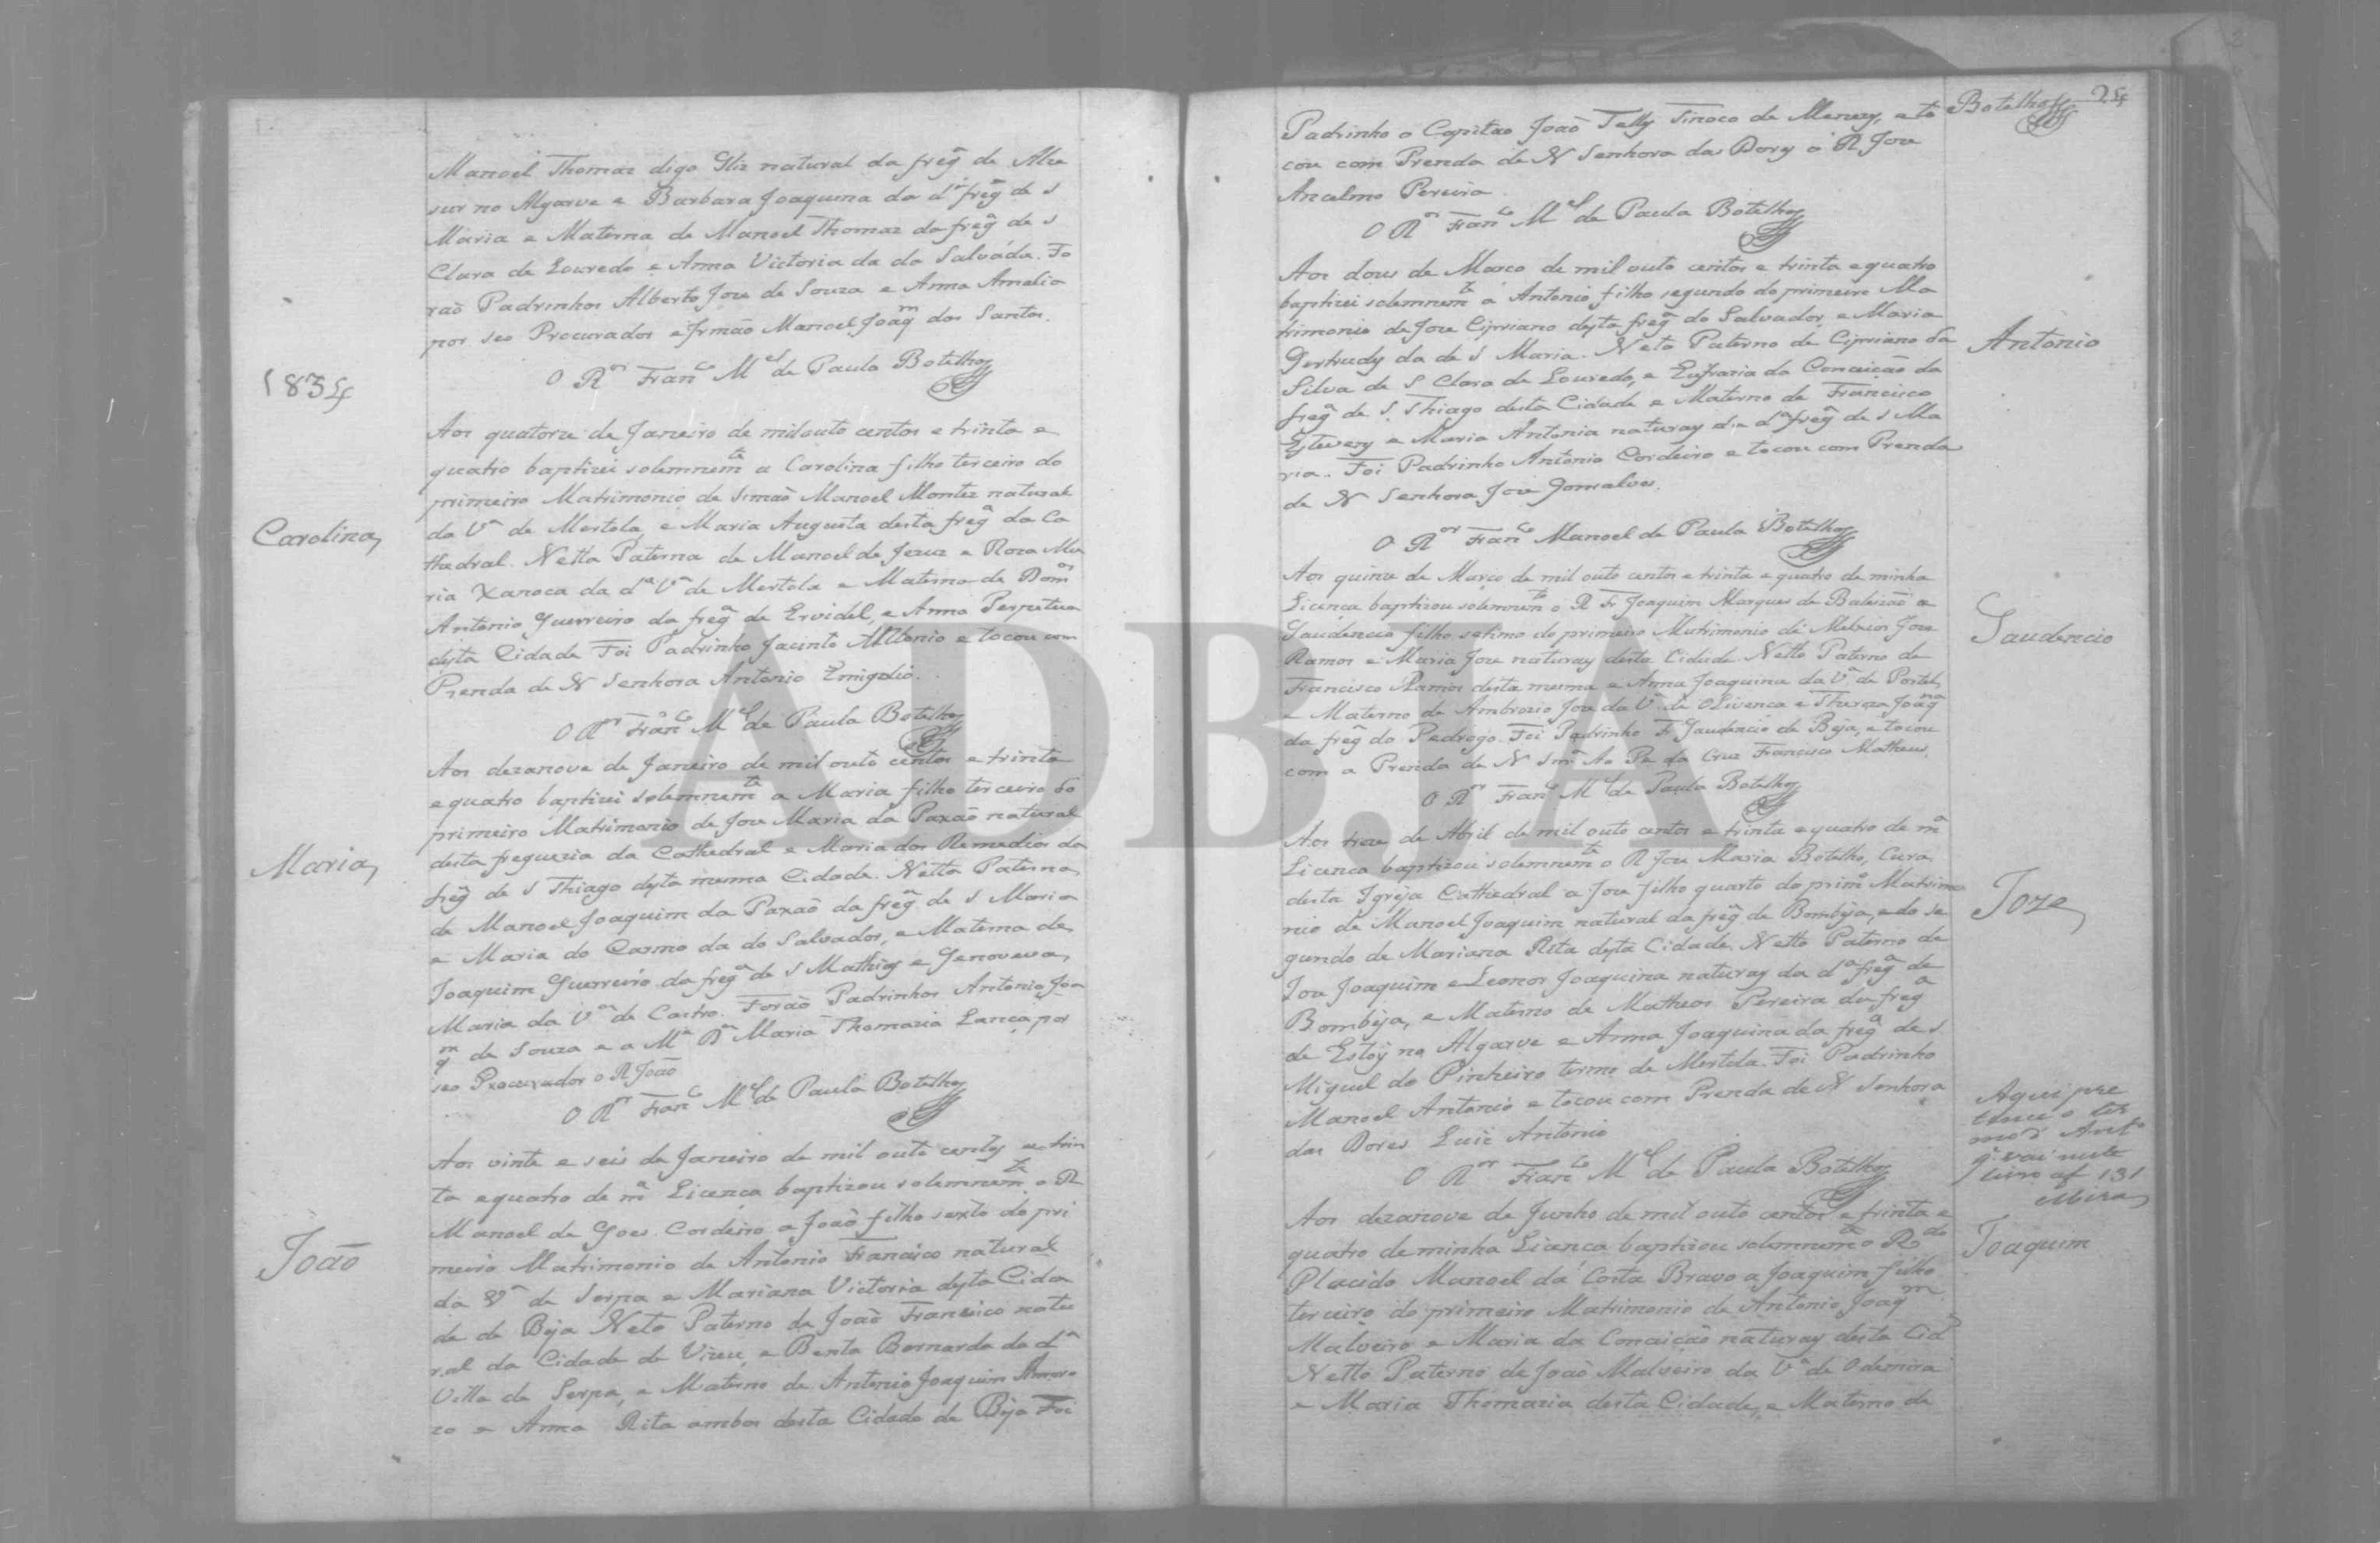 Manoel Thomaz digo Glz natural da freg.ª de Alce
sur no Algarve e Barbara Joaquina da d.ª freg.ª de S
Maria e Materna de Manoel Thomaz da freg.ª de S
Clara de Louredo e Anna Victoria da do Salvador. Fo
raõ Padrinhos Alberto Joze de Souza e Anna Amalia
por seo Procurador e Irmão Manoel Joaq.m dos Santos.
O R.or Fran.co M.el de Paula Botelho
1834
Aos quatorze de Janeiro de mil outo centos e trinta e
quatro baptizei solemnem.te a Carolina filha terceira do
primeiro Matrimonio de Simaõ Manoel Montez natural
da V.ª de Mertola, e Maria Augusta desta freg.ª da Ca
Carolina
thedral. Netta Paterna de Manoel de Jezuz e Roza Ma
ria Xaroca da d.ª V.ª de Mertola e Materna de Dom.os
Antonio Guerreiro da freg.ª de Ervidel, e Anna Perpetua
desta Cidade Foi Padrinho Jacinto Antonio e tocou com
Prenda de N Senhora Antonio Emigdio.
O R.or Fran.co M.el de Paula Botelho
Aos dezanove de Janeiro de mil outo centos e trinta
e quatro baptizei solemnem.te a Maria filha terceira do
primeiro Matrimonio de Joze Maria da Paxaõ natural
desta freguezia da Cathedral e Maria dos Remedios da
Maria
freg.ª de S Thiago desta mesma Cidade. Netta Paterna
de Manoel Joaquim da Paxaõ da freg.ª de S Maria
e Maria do Carmo da do Salvador, e Materna de
Joaquim Guerreiro da freg.ª de S Mathias e Genoveva
Maria da V.ª de Castro. Foraõ Padrinhos Antonio Joa
q.m de Souza e a M.e D.ª Maria Thomazia Lança por
seo Procurador o R João
O R.or Fran.co M.el de Paula Botelho
Aos vinte e seis de Janeiro de mil outo centos e trin
ta e quatro de m.ª Licença baptizou solemnem.te o R
Manoel de Goes Cordeiro a Joaõ filho sexto do pri
João
meiro Matrimonio de Antonio Francisco natural
da V.ª de Serpa e Mariana Victoria desta Cida
de de Beja Neto Paterno de Joaõ Francisco natu
ral da Cidade de Vizeu, e Benta Bernarda da d.ª
Villa de Serpa, e Materno de Antonio Joaquim
zo e Anna Rita ambos desta Cidade de Beja Foi
Botelho 24
Padrinho o Capitao Joaõ Telly Tinoco de Menezes, e to
cou com Prenda de N Senhora das Dores o R Joze
Ancelmo Pereira
O R.or Fran.co M.el de Paula Botelho
Aos dous de Março de mil outo centos e trinta e quatro
baptizei solemnem.te a Antonio filho segundo do primeiro Ma
trimonio de Joze Cipriano desta freg.ª do Salvador, e Maria
Antonio
Gertrudes da de S Maria. Neto Paterno de Cipriano da
Silva de S Clara de Louredo, e Eufrazia da Conceição da
freg.ª de S. Thiago desta Cidade e Materno de Francisco
Esteves e Maria Antonia naturaes da d.ª freg.ª de S Ma
ria. Foi Padrinho Antonio Cordeiro e tocou com Prenda
de N Senhora Joze Gonsalves.
O R.or Fran.co Manoel de Paula Botelho
Aos quinze de Março de mil outo centos e trinta e quatro de minha
Licença baptizou solemnem.te o R Fr Joaquim Marques de Baleizaõ a
Gaudencio
Gaudencio filho setimo do primeiro Matrimonio de Melxior Joze
Ramos e Maria Joze naturaes desta Cidade. Netto Paterno de
Francisco Ramos desta mesma e Anna Joaquina da V.ª de Portel
e Materno de Ambrozio Joze da V.ª de Olivença e Thereza Joaq.na
da freg.ª do Pedrogo. Foi Padrinho Fr Gaudencio de Beja, e tocou
com a Prenda de N Snr.ª Ao Pe da Cruz Francisco Matheus.
O R.or Fran.co M.el de Paula Botelho
Aos treze de Abril de mil outo centos e trinta e quatro de m.ª
Licença baptizou solemnem.te o R Joze Maria Botelho, Cura
desta Igreja Cathedral a Joze filho quarto do prim.o Matrimo
Joze
nio de Manoel Joaquim natural da freg.ª de Bombeja, e do se
gundo de Mariana Rita desta Cidade. Netto Paterno de
Joze Joaquim e Leonor Joaquina naturaes da d.ª freg.ª de
Bombeja, e Materno de Matheos Pereira da freg.ª
de Estoy no Algarve e Anna Joaquina da freg.ª de S.
Miguel do Pinheiro termo de Mertola. Foi Padrinho
Manoel Antonio e tocou com Prenda de N Senhora
das Dores Luiz Antonio
O R.or Fran.co M.el de Paula Botelho
Aqui pre
tence o ter
mo d' Ant.o
q. vai neste
livro af 131
Mira
Aos dezanove de Junho de mil outo centos e trinta e
quatro de minha Licença baptizou solemnem.te o R.do
Joaquim
Placido Manoel da Costa Bravo a Joaquim filho
terceiro do primeiro Matrimonio de Antonio Joaq.m
Malveiro e Maria da Conceição naturaes desta Cid.e
Netto Paterno de Joaõ Malveiro da V.ª de Odemira
e Maria Thomazia desta Cidade, e Materno de
ADBJA